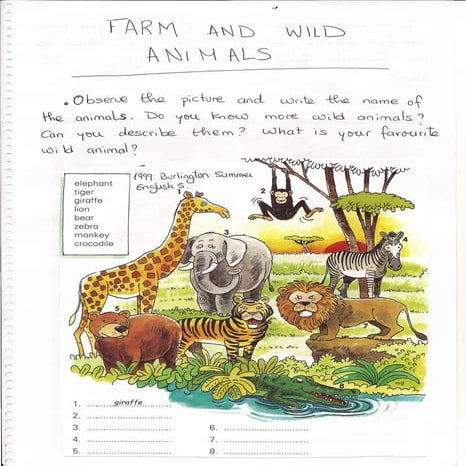 FARM AND WILD
ANIMALS
. Observe the picture and write the name of
the animals. Do you know more wild animals?
Can you describe them? What is your favourite
wild animal?
1999: Burlington Summer
English 5.
elephant
tiger
giraffe
lion
bear
zebra
monkey
crocodile
1
2
3
4
5
8
1. giraffe
2.
3.
4.
5.
6.
7.
8.